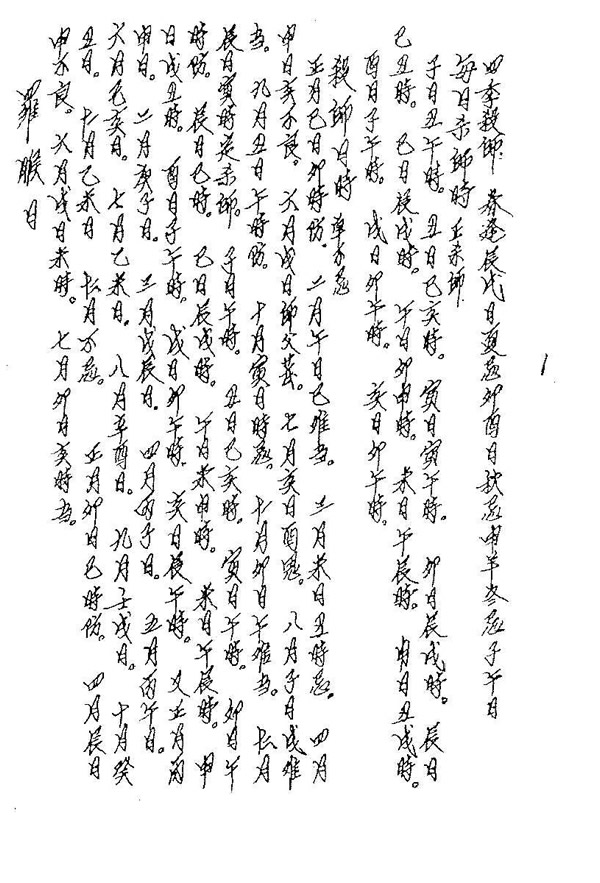 四季殺師 春逢辰戌日夏忌卯酉日秋忌申羊冬忌子午日
每日杀師時 丘杀師
子日丑午時。 丑日巳亥時。 寅日寅午時。 卯日辰戌時。 辰日
巳丑時。 巳日辰戌時。 午日卯申時。 未日午辰時。 申日丑戌時。
酉日子午時。 戌日卯午時。 亥日卯午時。
殺師日時 单不忌
正月巳日卯時防。 二月午日巳难当。 三月未日丑時忌。 四月
申日亥不良。 六月戌日師父葬。 七月亥日酉忌。 八月子日戌难
当。 九月丑日午時防。 十月寅日時忌。 十一月卯日午难当。 十二月
辰日寅時是杀師。 子日午時。 丑日巳亥時。 寅日午時。 卯日午
時防。 辰日巳時。 巳日辰戌時。 午日未申時。 未日午辰時。 申
日戌丑時。 酉日子午時。 戌日卯午時。 亥日辰午時。 又正月丙
申日。 二月庚子日。 三月戊辰日。 四月丙子日。 五月丙午日。
六月己亥日。 七月乙未日。 八月辛酉日。 九月壬戌日。 十月癸
丑日。 十一月乙未日 十二月不忌。 正月卯日巳時防。 四月辰日
申不良。 六月戌日未時。 七月卯日亥時当。
羅睺日
1